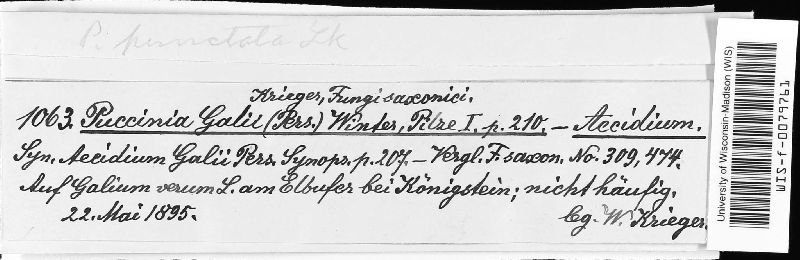 P. punctata Lk
Krieger, Fungi saxonici.
1063. Puccinia Galii (Pers.) Winter, Pilze I. p. 210. — Aecidium.
Syn. Aecidium Galii Pers. Synops. p. 207. — Vergl. F. saxon. No. 309, 474.
Auf Galium verum L. am Elbufer bei Königstein; nicht häufig.
22. Mai 1895.
lg. W. Krieger.
University of Wisconsin-Madison (WIS)
WIS-f-0079761